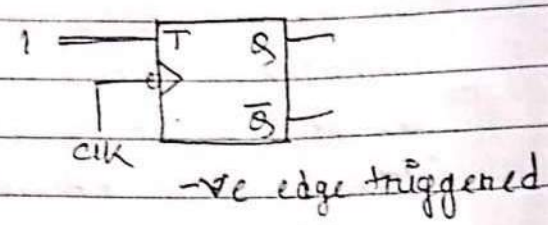 1 T Q
Q̅
clk
-ve edge triggered